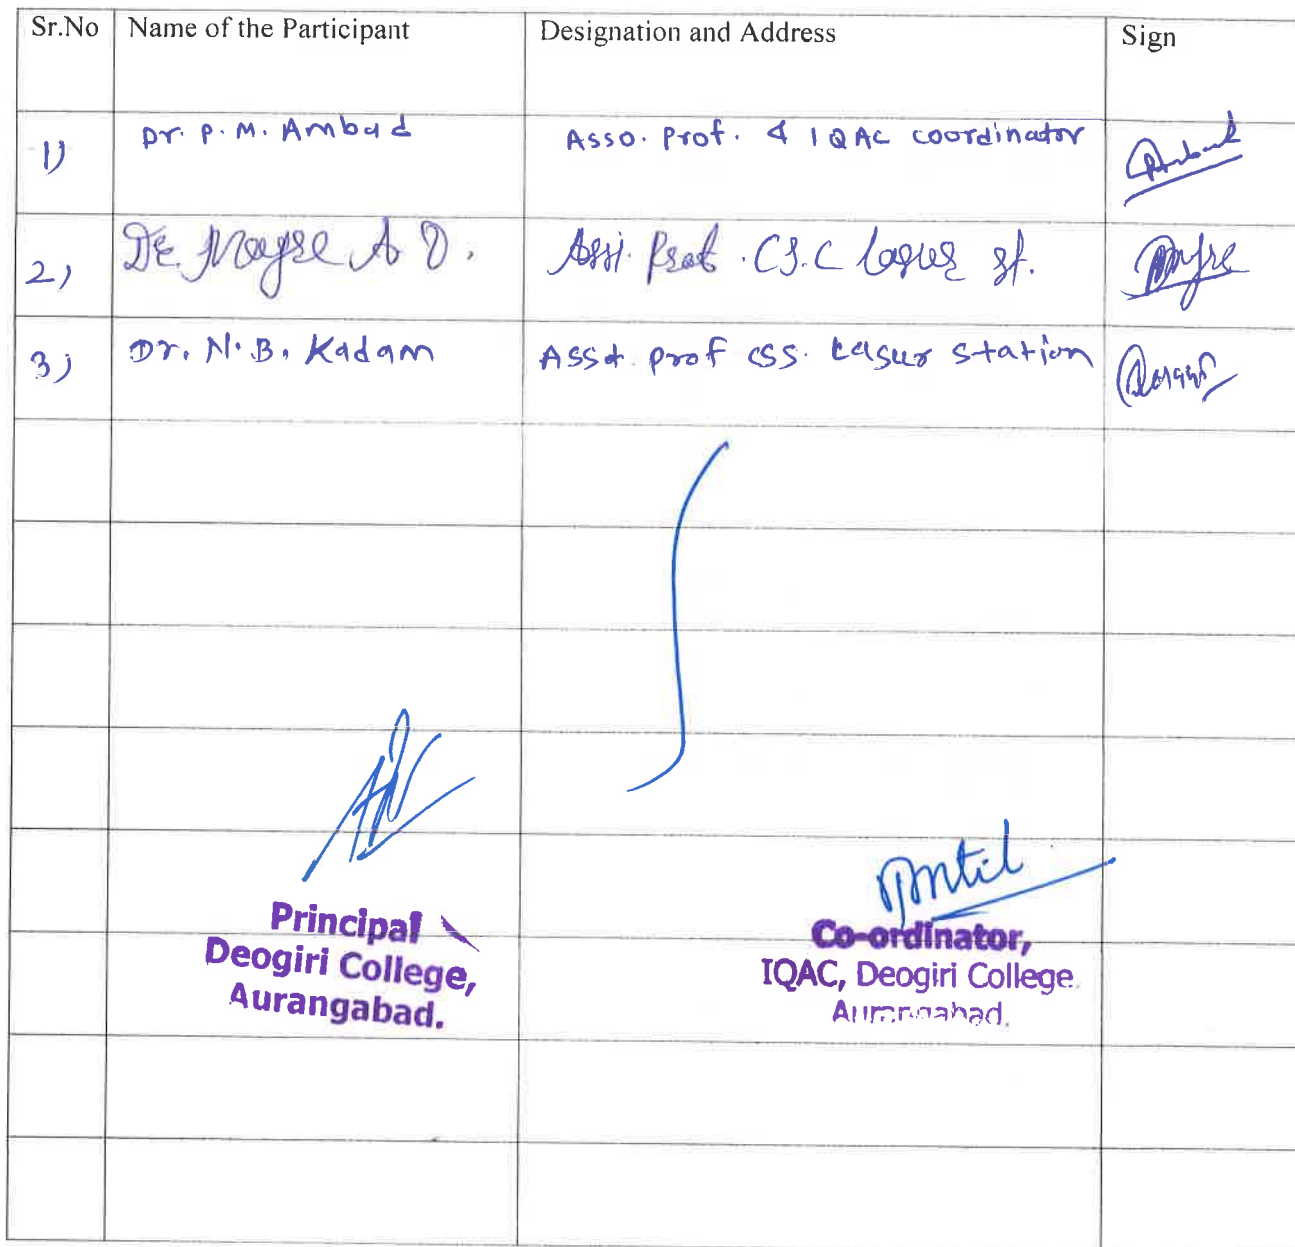 Sr.No Name of the Participant Designation and Address Sign
1) Dr. P. M. Ambad Asso. Prof. & IQAC coordinator
2) Dr. Mayse A D. Assi. Prof. C.S.C Lasur st.
3) Dr. N. B. Kadam Asst. prof CSS. Lasur Station
Principal
Deogiri College,
Aurangabad.
Co-ordinator,
IQAC, Deogiri College
Aurangabad.